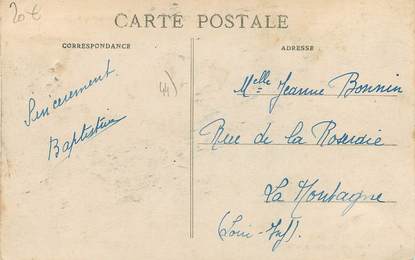 20€
CARTE POSTALE
CORRESPONDANCE
ADRESSE
44)
Sincerement
Baptistine
Melle Jeanne Bonnin
Rue de la Roseraie
La Montagne
(Loire-Inf).